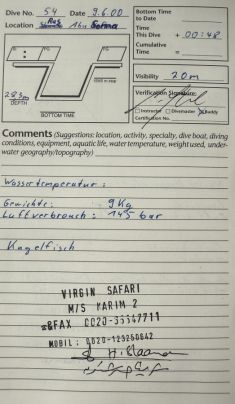 Dive No. 54 Date 9.6.00
Location Ras Abu
Bottom Time
to Date
Time
This Dive + 00:48
Cumulative
Time =
SI
PG
PG
Visibility 20m
28,3m
DEPTH
BOTTOM TIME
Verification Signature:
Instructor Divemaster Buddy
Certification No.
Comments (Suggestions: location, activity, specialty, dive boat, diving
conditions, equipment, aquatic life, water temperature, weight used, under-
water geography/topography)
Wassertemperatur :
Gewichte : 9 Kg
Luftverbrauch : 145 bar
Kugelfisch
VIRGIN SAFARI
M/S KARIM 2
&FAX 0020-65547711
MOBIL : 0020-123250842